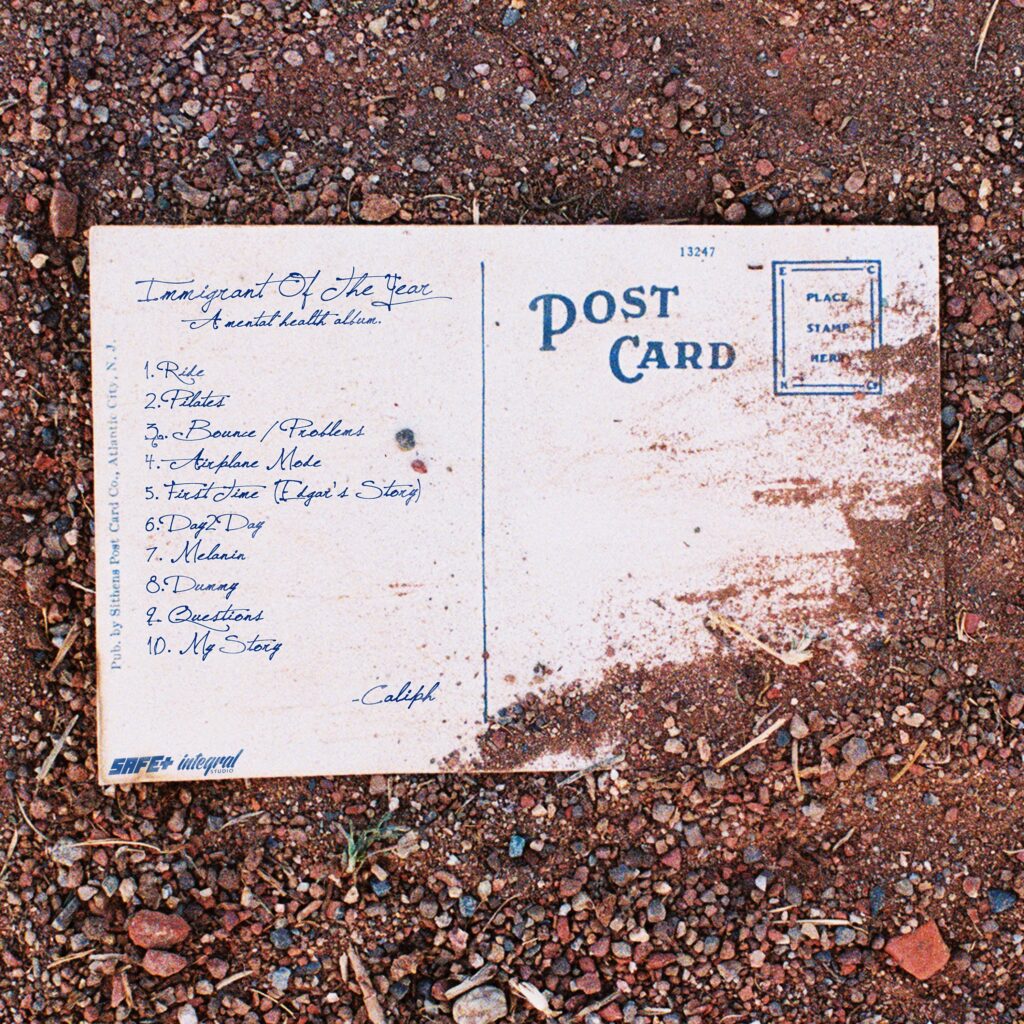 Immigrant Of The Year
A mental health album.
1. Ride
2. Pilates
3. Bounce / Problems
4. Airplane Mode
5. First Time (Edgar's Story)
6. Day2Day
7. Melanin
8. Dummy
9. Questions
10. My Story
-Caliph
SAFE+ integral
STUDIO
Pub. by Sithens Post Card Co., Atlantic City, N. J.
13247
POST
CARD
E C
PLACE
STAMP
HERE
N Co